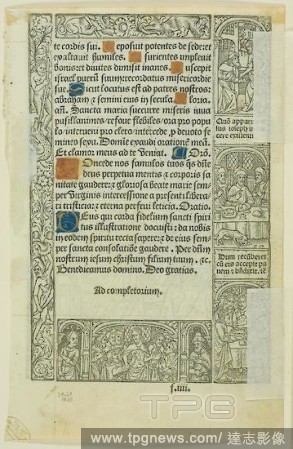 te cordis sui. Deposuit potentes de sede: et
exaltavit humiles. Esurientes implevit
bonis: et divites dimisit inanes. Suscepit
israel puerum suum: recordatus misericordie
sue. Sicut locutus est ad patres nostros:
abraham et semini eius in secula. Gloria.
añ. Sancta maria succurre miseris iuva
pusillanimes refove flebiles ora pro popu
lo interveni pro clero intercede p devoto fe
mineo sexu. Domine exaudi orationem meã.
Et clamor meus ad te veniat. Orõ.
Concede nos famulos tuos q̃s dñe
deus perpetua mentis et corporis sa
nitate gaudere: et gloriosa beate marie sem
per virginis intercessione a presenti libera
ri tristicia: et eterna perfrui leticia. Oratio.
Deus qui corda fidelium sancti spiri
tus illustratione docuisti: da nobis
in eodem spiritu recta sapere: et de eius sem
per sancta consolatione gaudere. Per dñm
nostrum iesum christum filium tuum. ꝛc.
Benedicamus domino. Deo gratias.
Ad completorium.
f.iiii.
TPG
www.tpgnews.com / 達志影像